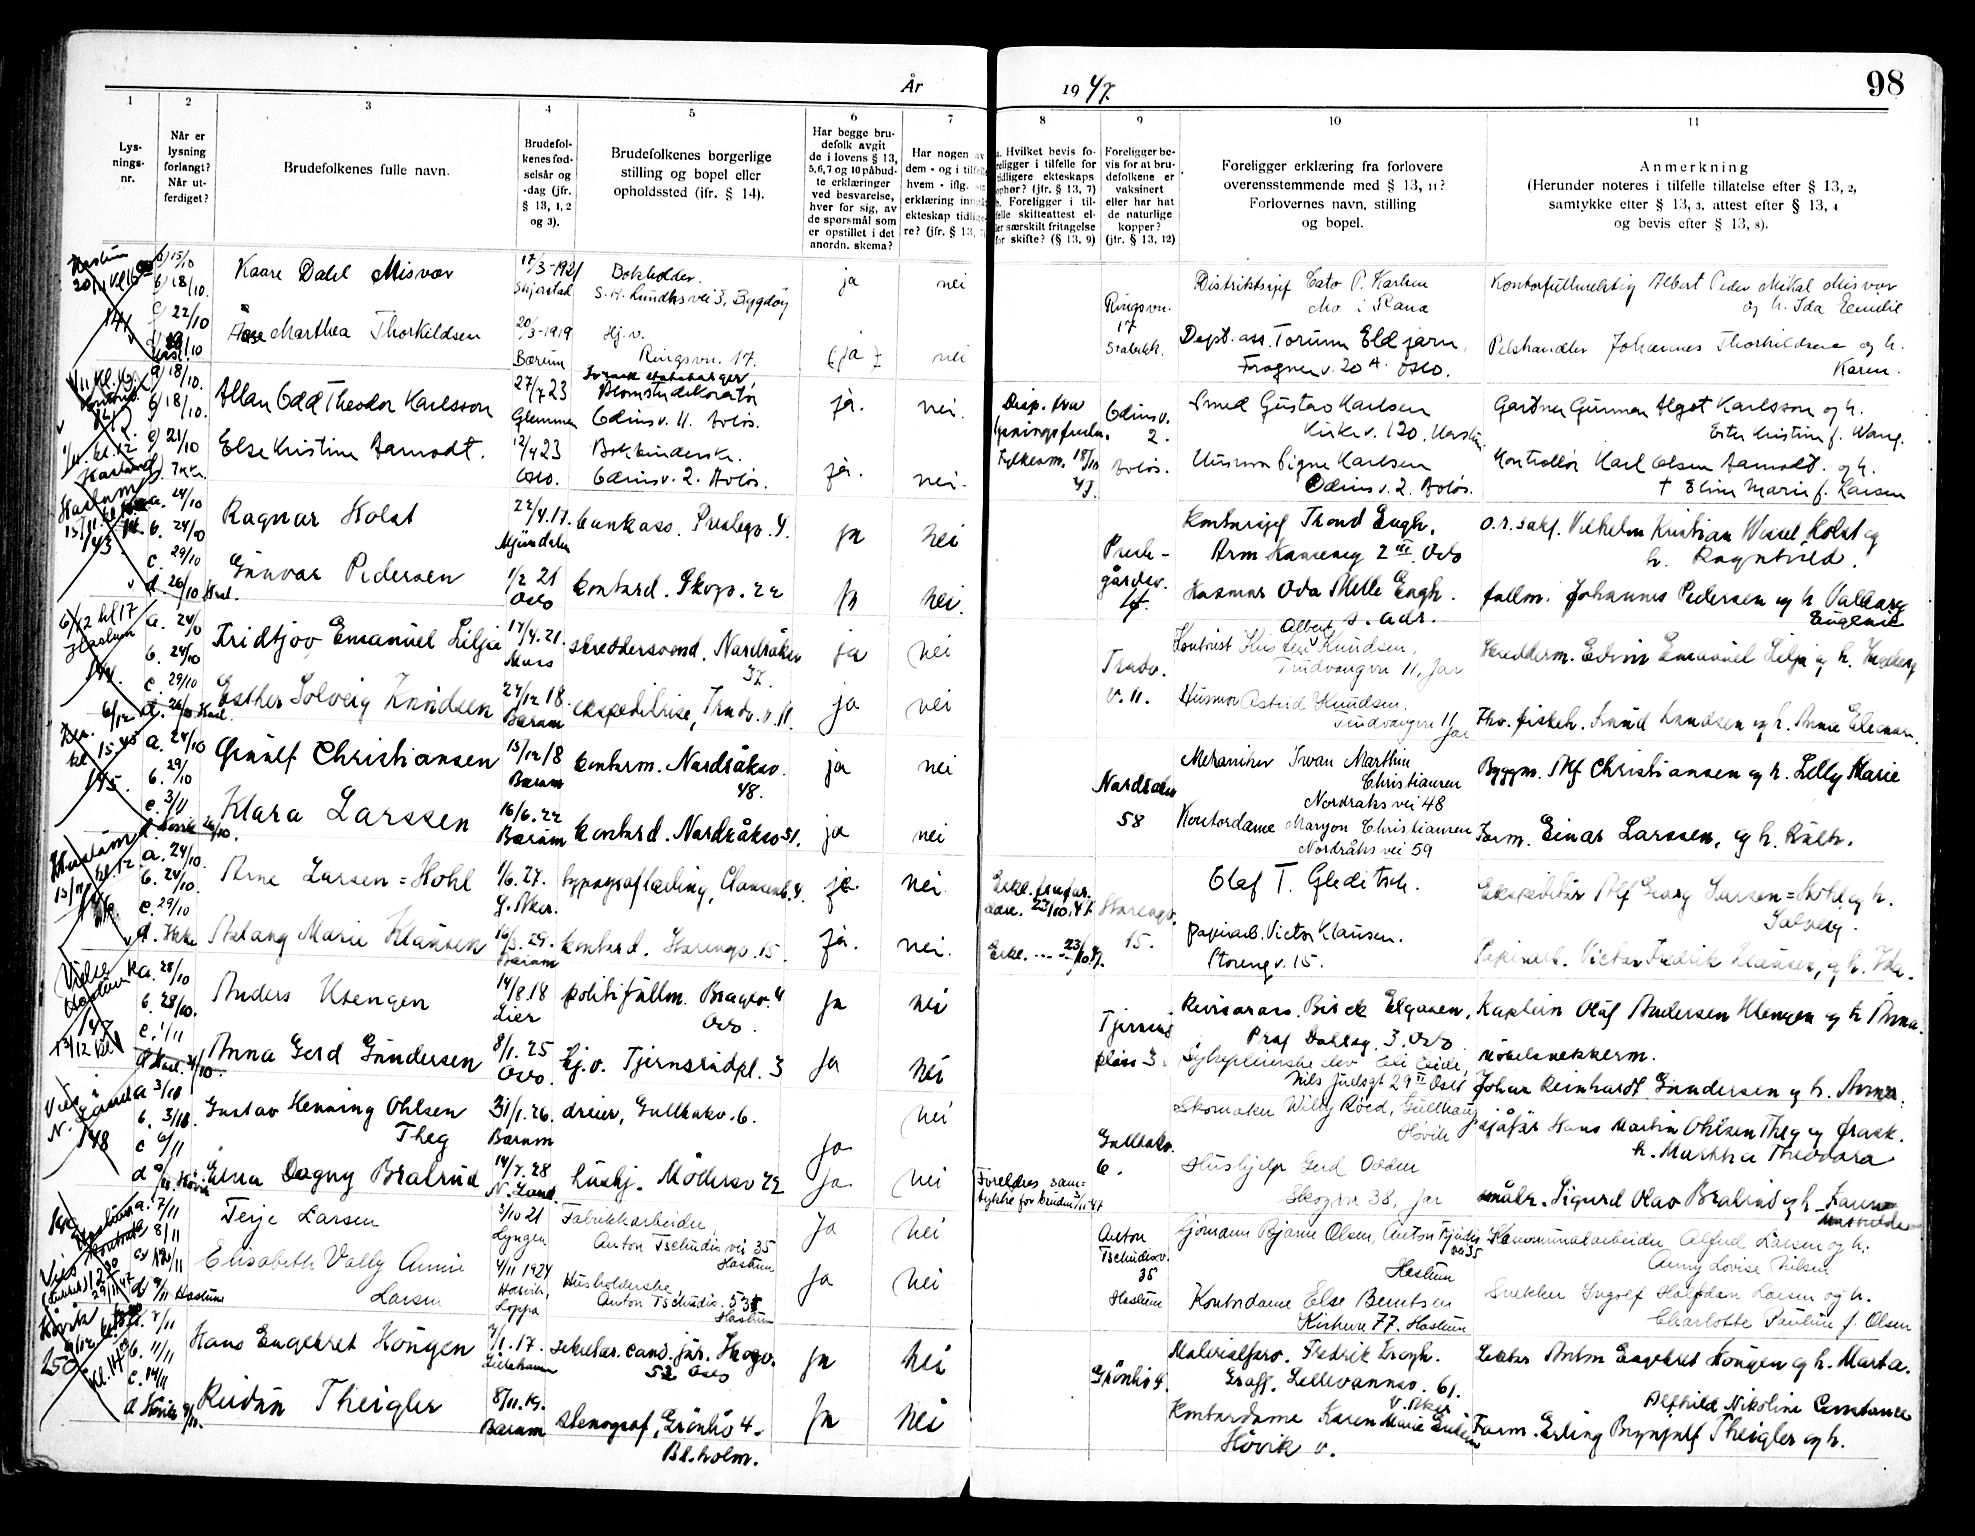 År 1947. 98
1 2 3 4 5 6 7 8 9 10 11
Lys-
nings-
nr.
Når er
lysning
forlangt?
Når ut-
ferdiget?
Brudefolkenes fulle navn.
Brudefol-
kenes fød-
selsår og
-dag (jfr.
§ 13, 1, 2
og 3).
Brudefolkenes borgerlige
stilling og bopel eller
opholdssted (jfr. § 14).
Har begge bru-
defolk avgit
de i lovens § 13,
5,6,7 og 10 påbud-
te erklæringer
ved besvarelse,
hver for sig, av
de spørsmål som
er opstillet i det
anordn. skema?
Har nogen av
dem - og i tilfelle
hvem - iflg.
erklæring inngått
ekteskap tidlige-
re? (jfr. § 13,
a. Hvilket bevis fo-
religger i tilfelle for
tidligere ekteskaps
ophør? (jfr. § 13, 7)
b. Foreligger i til-
felle skifteattest el-
ler særskilt fritagelse
for skifte? (§ 13, 9)
Foreligger be-
vis for at bru-
defolkene er
vaksinert
eller har hat
de naturlige
kopper?
(jfr. § 13, 12)
Foreligger erklæring fra forlovere
overensstemmende med § 13, 11?
Forlovernes navn, stilling
og bopel.
Anmerkning
(Herunder noteres i tilfelle tillatelse efter § 13, 2,
samtykke efter § 13, 3, attest efter § 13, 4
og bevis efter § 13, 8).
Haslum
141
a) 15/10
b) 18/10.
c) 22/10
Kaare Dahl Misvær
17/3-1921
Skjerstad
Bokholder.
S. H. Lundhs vei 3, Bygdøy
ja nei
Ringsvn.
17
Stabekk.
Distriktssjef Cato P. Karlsen
Mo i Rana
Kontorfullmektig Albert Peder Mikal Misvær
og h. Ida Emelie
Åse Marthea Thorkildsen
20/3-1919
Bærum
Hj.v.
Ringsvn. 17.
(ja) nei
Dept. ass. Torunn Eldjarn,
Frognerv. 20 A Oslo.
Pelshandler Johannes Thorkildsen og h.
Karen.
142.
a) 18/10.
b) 18/10.
c) 21/10
Allan Odd Theodor Karlsson
27/7 23
Glemmen
Svensk statsborger,
Blomsterdekoratør
Odinsv. 11. Avløs.
ja. nei.
Disp. fra
lysningsfristen.
Fylkesm. 18/10
47.
Odinsv.
2.
Avløs.
Smed Gustav Karlsen
Kirkev. 120, Haslum
Gartner Gunnar Algot Karlsson og h.
Ester Kristine f. Wang.
Else Kristine Aamodt.
12/4 23
Oslo.
Bokbinderske.
Odinsv. 2. Avløs.
ja. nei.
Husmor Signe Karlsen
Odinsv. 2. Avløs.
Kontrollør Karl Olsen Aamodt. og h.
† Eline Marie f. Larsen
Haslum
143.
a. 24/10
b. 24/10
c. 29/10
d. 26/10 Hasl.
Ragnar Holst
22/4.17.
Mjøndalen
bankass. Prestegv. 4.
ja nei
Preste-
gårdsv.
4.
Kontorsjef Trond Engh.
Arm Hansensg 2 III. Oslo
O.r.sakf. Vilhelm Kristian Wessel Holst og
h. Ragnhild.
Gunvor Pedersen
1/2 21
Oslo
kontord. Skogv. 22
ja nei.
Husmor Oda Thelle Engh.
s. adr.
fullm. Johannes Pedersen og h. Valborg
Eugenie
6/12 kl 17
Haslum
144.
a. 24/10
b. 24/10
c. 29/10
Fridtjov Emanuel Lilja
17/4.21.
Moss
skreddersvend. Nordråksv
37.
ja nei
Trudv.
v. 11.
Albert
Kontorist Kristian Knudsen,
Trudvangvn 11, Jar
Skredderm. Edvin Emanuel Lilja og h. Ingeborg
Esther Solveig Knudsen
27/12 18.
Bærum
ekspeditrise, Trudv. v. 11.
ja nei
Husmor Astrid Knudsen.
Trudvangvn 11 Jar
Thv. fiskeh. Knud Knudsen og h. Anna Eleonore.
kl 15.45
145.
a. 24/10
b. 29/10
c. 3/11
Ørnulf Christiansen
15/12 18
Bærum
kontorm. Nordråksv.
48.
ja nei
Nordraksv
58
Mekaniker Iwan Marthin
Christiansen
Nordraks vei 48
Byggm. Alf Christiansen og h. Lilly Marie
Klara Larssen
16/6.22
Bærum
kontord. Nordråksv 51.
ja nei
Kontordame Maryon Christiansen
Nordråks vei 59
Form. Einar Larssen, og h. Ruth.
Haslum
kl. 12
146.
a. 24/10.
b. 24/10.
c. 29/10
Arne Larsen=Hohl
1/6.27.
V. Aker.
typograflærling, Clausenb. 4.
ja nei
23/10.47
Storengv.
15.
Olaf T. Gleditsch.
Ekspeditør Alf Georg Larsen=Hohl og h.
Solveig.
Aslaug Marie Klausen
16/3.29.
Bærum
kontord. Storengv. 15.
ja. nei.
Erkl. 23/10.47.
papirarb. Victor Klausen.
Storengv. 15.
Papirarb. Victor Fredrik Klausen, og h. Ida.
Vielse
Haslum
147
a. 28/10
b. 28/10.
c. 1/11
Anders Utengen
14/8.18
Lier
politifullm. Bragev. 4
Oslo.
ja nei
Tjernsrud
plass 3.
Revisorass. Birck Elgaaen,
Prof. Dahlsg. 3. Oslo
Kaptein Oluf Andersen Utengen og h Anna.
Anna Gerd Gundersen
8/1.25
Oslo.
hj.v. Tjernsrudpl. 3
ja nei
Sykepleierske elev Eli Eide,
Nils Juelsgt 29 II Oslo
Møbelsnekkerm.
Johan Reinhardt Gundersen og h. Anna.
Vies i
N. Land
148
a 3/10
b. 3/10.
c 6/11
Gustav Henning Ohlsen
Theg
31/1.26.
Bærum
dreier, Gullhakv. 6.
ja nei
Gullhakv.
6.
Skomaker Willy Roed, Gullhaug
Høvik
sjåfør Hans Martin Ohlsen Theg og frask.
h. Martha Theodora
Elna Dagny Bratrud
14/7.28
N. Land.
hushj. Mødersv 22
ja. nei
Foreldres sam=
tykke for bruden 5/11 47
Hushjelp Gerd Odden
Skogvn 38, Jar
målr. Sigurd Olav Bratrud og h. Fanny
Mathilde
a. 7/11
8/11
d 9/11 Haslum
Terje Larsen
3/10 21
Lyngen
Fabrikkarbeider,
Anton Tschudis vei 35
Haslum
ja nei
Anton
Tschudisv.
35
Haslum
Sjømann Bjarne Olsen, Anton Tschudis
vei 35
Haslum
Kommunalarbeider Alfred Larsen og h.
Anny Lovise Nilsen
Elisabeth Vally Annie
Larsen
4/11 1924
Hasvik,
Loppa
Husholderske,
Anton Tschudis. 35
Haslum
ja nei
Kontordame Else Berntsen
Kirkevn 77. Haslum
Snekker Ingolf Halfdan Larsen og h.
Charlotte Pauline f. Olsen
Høvik
250
a. 7/11
b. 11/11
c. 14/11
d Høvik 9/11.
Hans Engebret Hougen
7/1.17.
Lillehammer
sekretær. cand. jur. Skogv.
52 Oslo
ja nei
Grönhö 4.
Materialforv. Fredrik Krogh.
Graff. Lillevannsv. 61.
V. Aker
Lektor Anton Engebret Hougen og h. Marta.
Reidun Theigler
8/11.19.
Bærum
stenograf, Grönhö 4.
Bl.holm.
ja nei
Kontordame Karen Marie
Høvik v.
Alfhild Nikoline Constance
Form. Erling Brynjulf Theigler og h.